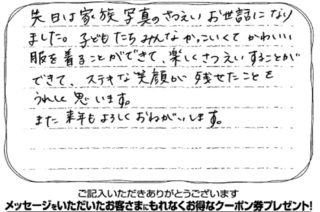 先日は家族写真のさつえいお世話になり
ました。子どもたちみんなかっこいくてかわいい
服を着ることができて、楽しくさつえいすることが
できて、ステキな笑顔が残せたことを
うれしく思います。
また来年もよろしくおねがいします。
ご記入いただきありがとうございます
メッセージをいただいたお客さまにもれなくお得なクーポン券プレゼント!